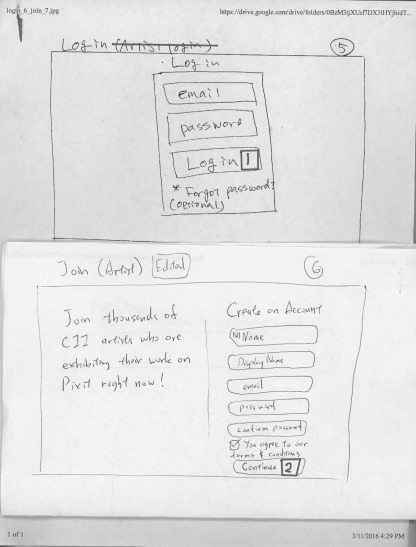 login_6_join_7.jpg
https://drive.google.com/drive/folders/
Login (Artist login)
5
· Log in
email
password
Login 1
* Forgot password?
(optional)
Join (Artist) Edital
6
Join thousands of
CII artists who are
exhibiting their work on
Pixit right now!
Create an Account
Full Name
Display Name
email
password
confirm password
You agree to our
terms & conditions
Continue 2
1 of 1
3/11/2016 4:29 PM